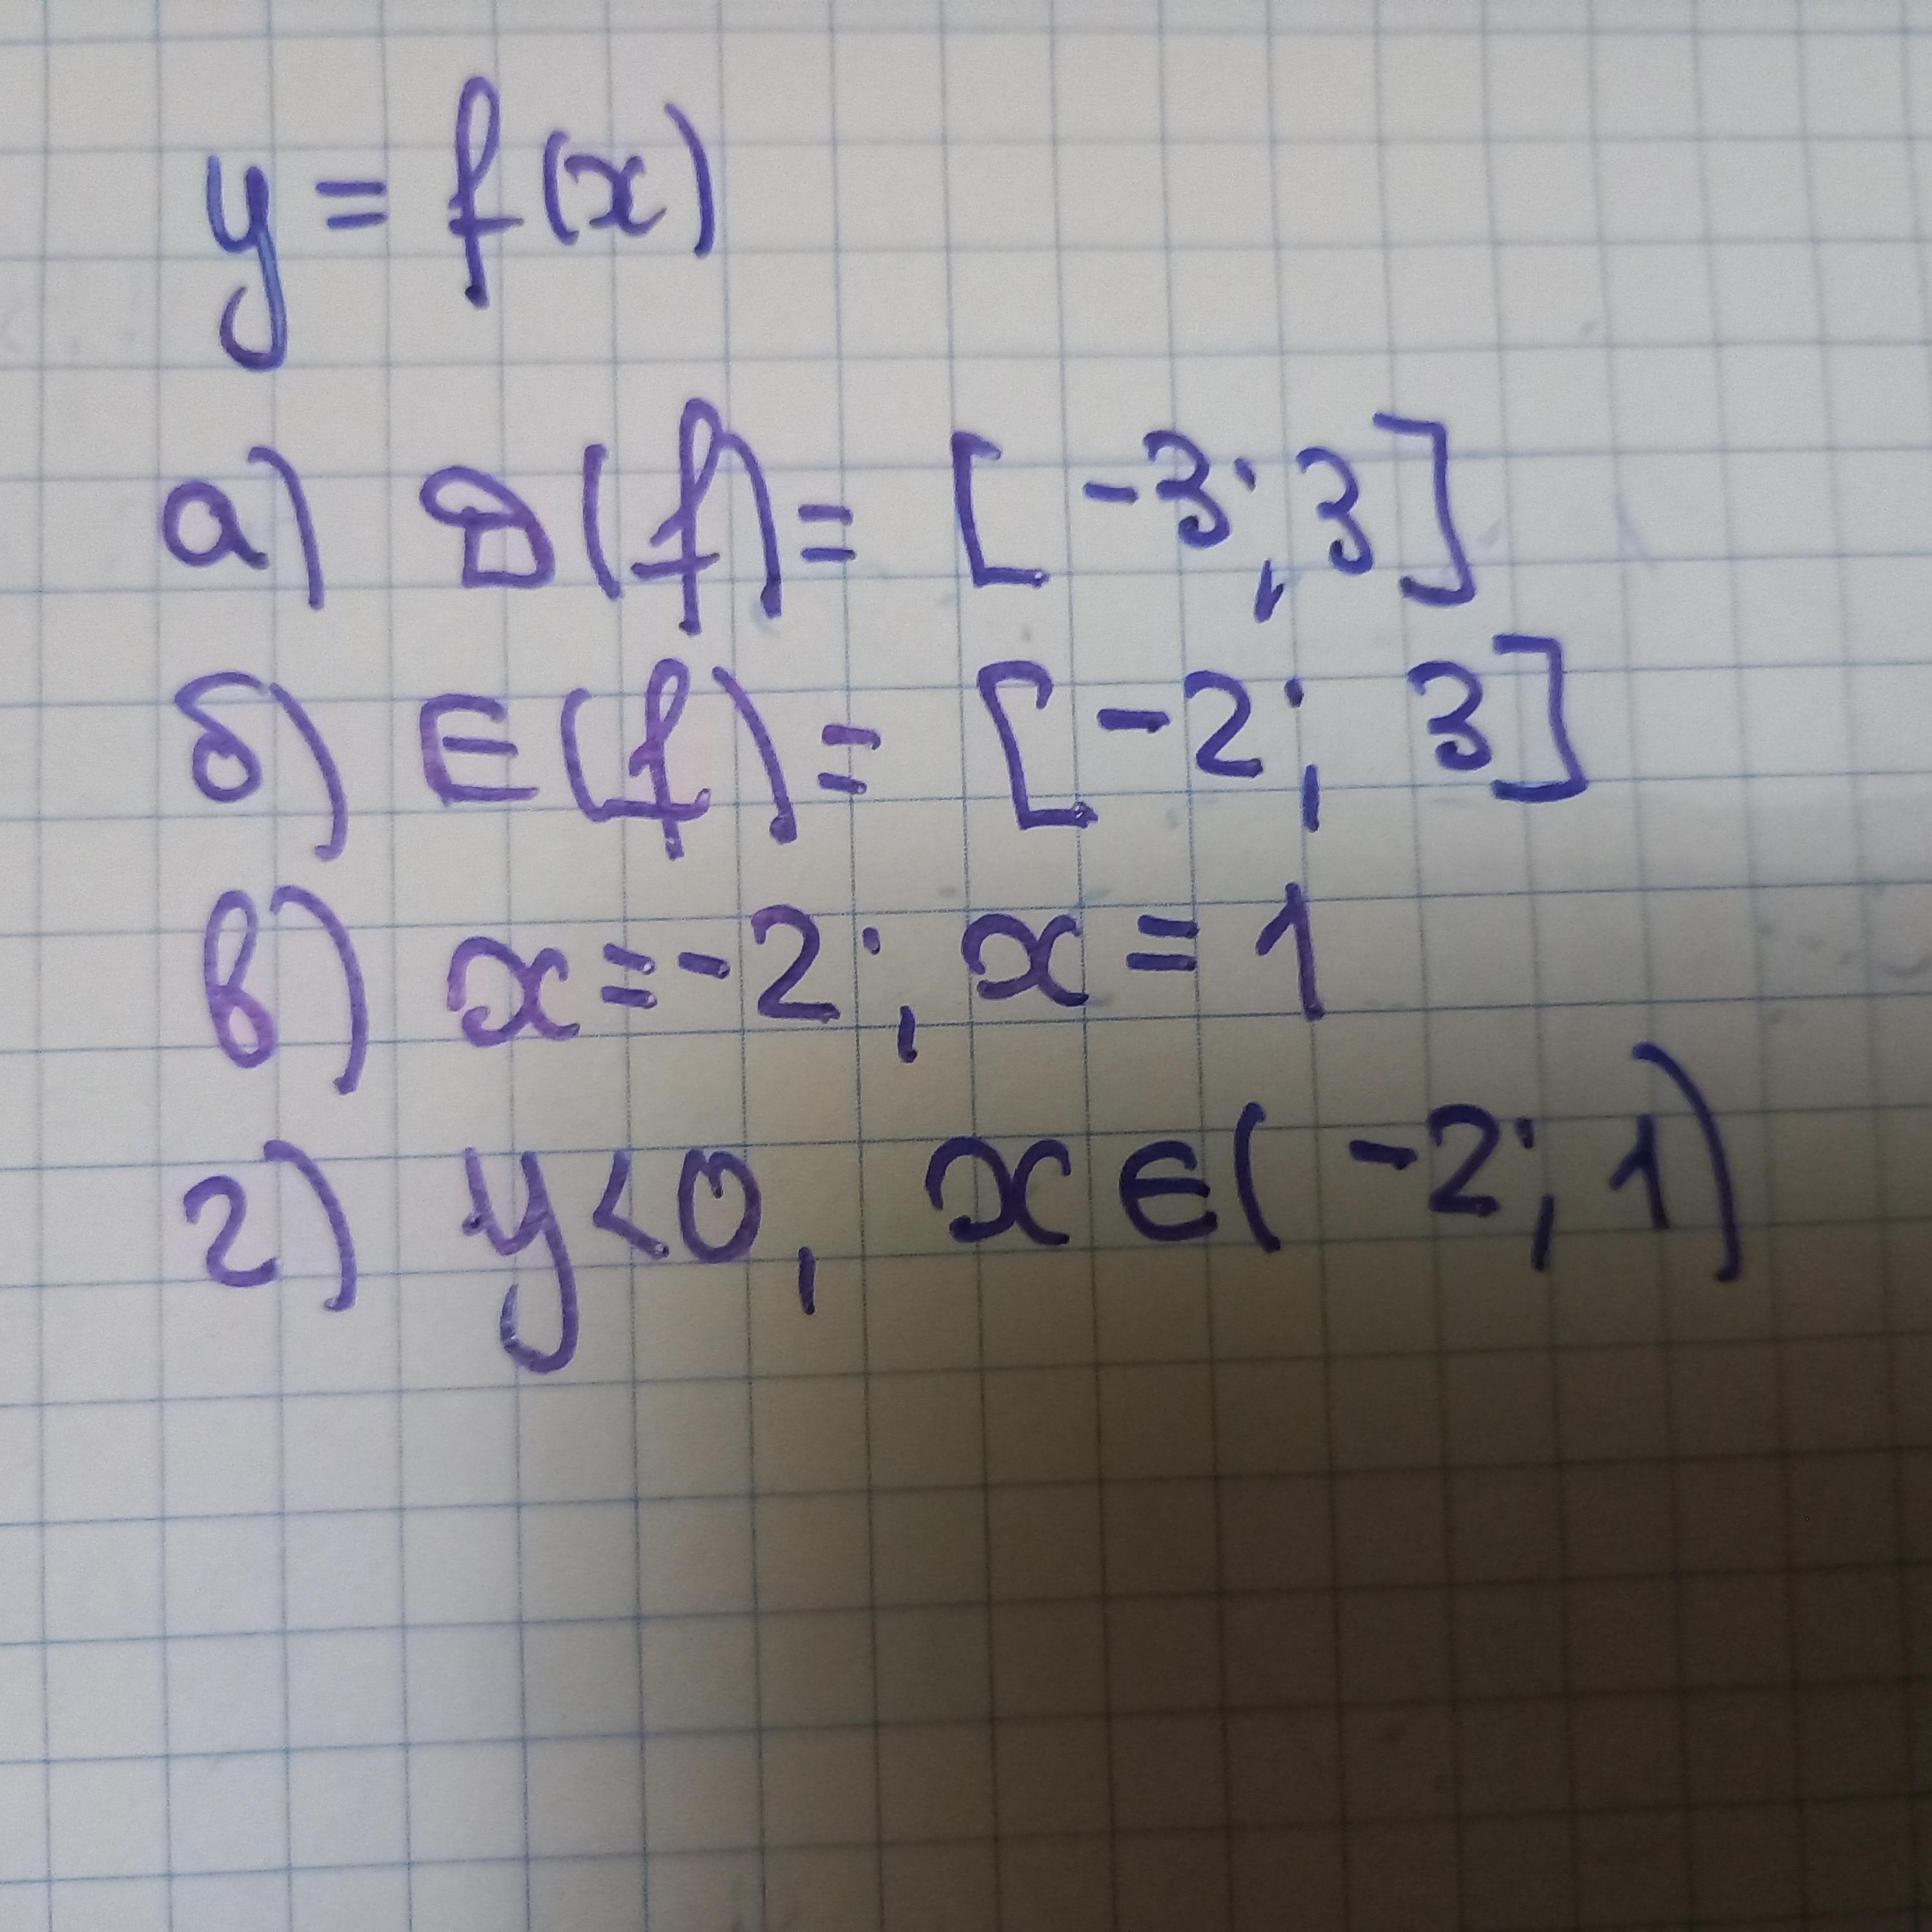 y = f(x)
а) D(f) = [-3; 3]
б) E(f) = [-2; 3]
в) x = -2; x = 1
г) y < 0, x ∈ (-2; 1)